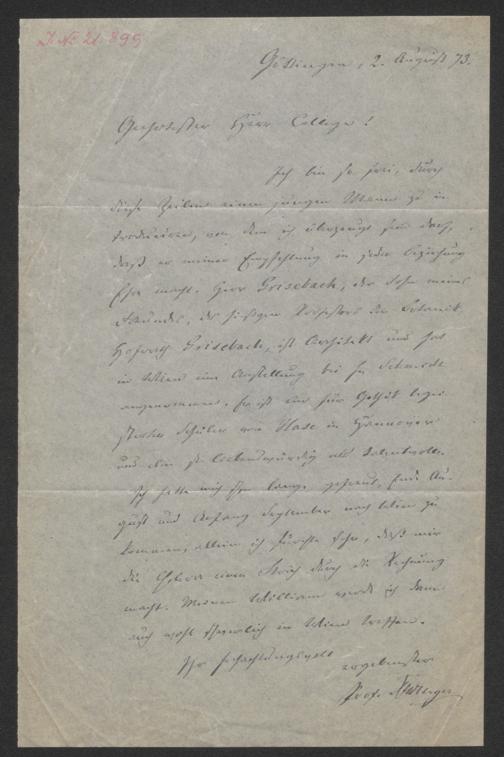 J. N. 21.899
Göttingen, 2. August 73.
Geehrtester Herr College!
Ich bin so frei, durch
diese Zeilen einen jungen Mann zu in
troduciren, von dem ich überzeugt sein darf,
daß er meiner Empfehlung in jeder Beziehung
Ehre macht. Herr Grisebach, der Sohn meines
Freundes, des hiesigen Professors der Botanik
Hofrath Grisebach, ist Architekt und hat
in Wien eine Anstellung bei H. Schmidt
angenommen. Er ist ein für Gothik begei
sterter Schüler von Hase in Hannover
und eben so liebenswürdig als talentvoll.
Ich hatte mich schon lange gefreut, Ende Au-
gust und Anfang September nach Wien zu
kommen, allein ich fürchte sehr, daß mir
die Cholera einen Strich durch die Rechnung
macht. Meinen William werde ich dann
auch wohl schwerlich in Wien treffen.
Ihr hochachtungsvoll
ergebenster
Prof.